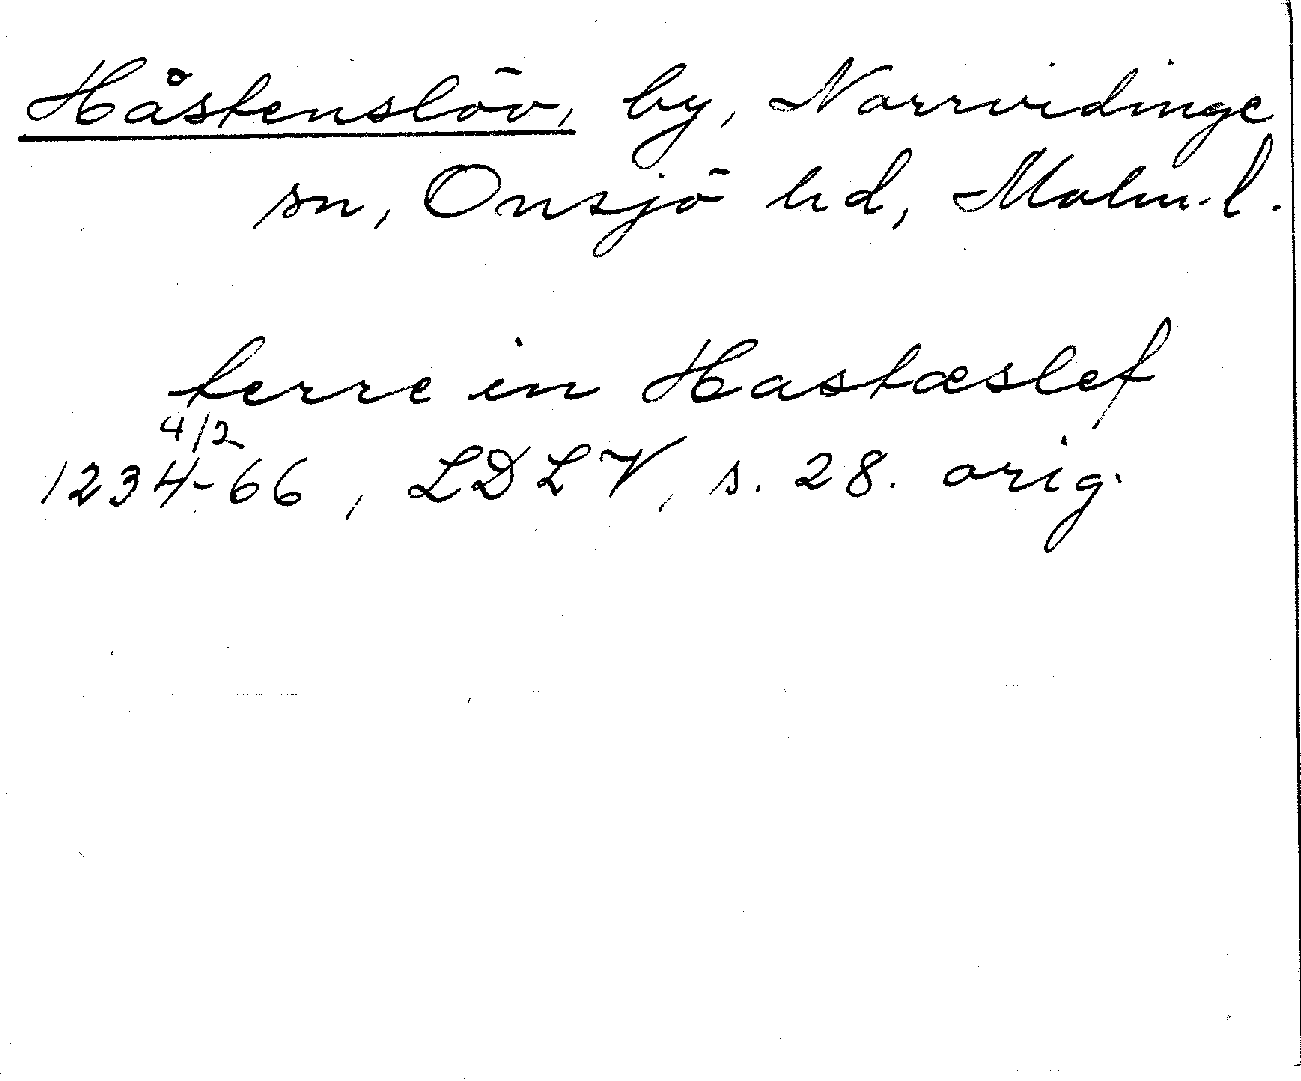 Håstenslöv, by, Norrvidinge
sn, Onsjö hd, Malm. l.
terre in Hastæslef
4/2
1234-66, LDLV, s. 28. orig.